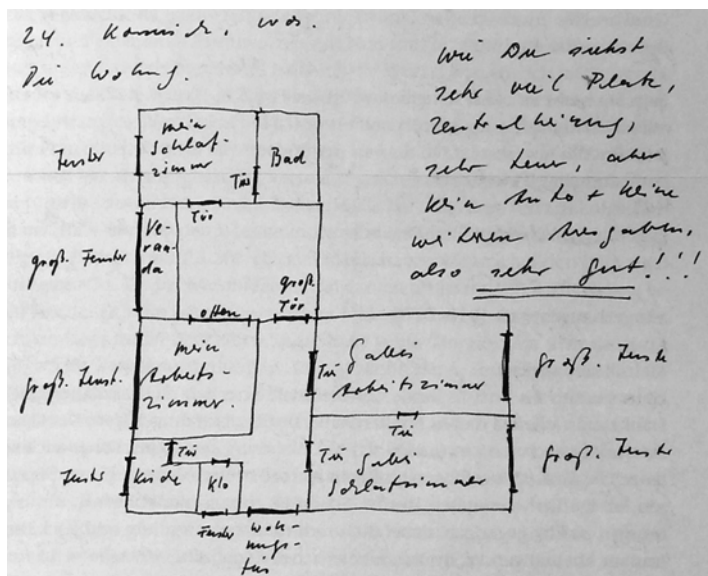 24.
Die Wohnung.
wie Du siehst
sehr viel Platz,
Zentralheizung,
sehr teuer, aber
kein Auto + keine
weiteren Ausgaben,
also sehr gut!!!
Fenster
mein
Schlaf
zimmer
Tür
Bad
Tür
groß. Fenster
Ve-
ran-
da
offen
groß.
Tür
groß. Fenst.
mein
Arbeits-
zimmer
Tür
Gallis
Arbeitszimmer
Tür
groß. Fenster
Fenster
Küche
Tür
Klo
Tür
Gallis
Schlafzimmer
groß. Fenster
Fenster
Woh-
nungs-
tür